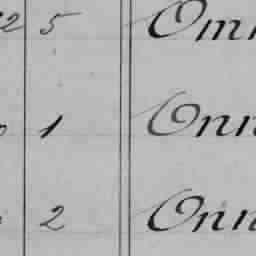 12 5 Om
1 Onn
2 Onn